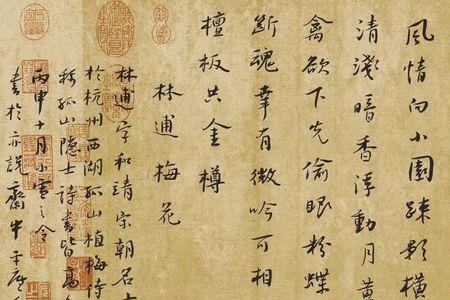 風情向小園疎影橫
清淺暗香浮動月黃
禽欲下先偷眼粉蝶
斷魂幸有微吟可相
檀板共金樽
林逋梅花
林逋字和靖宋朝名
於杭州西湖孤山植梅
稱孤山隐士詩書皆高
丙申十月小雪之令
書於亦說齋